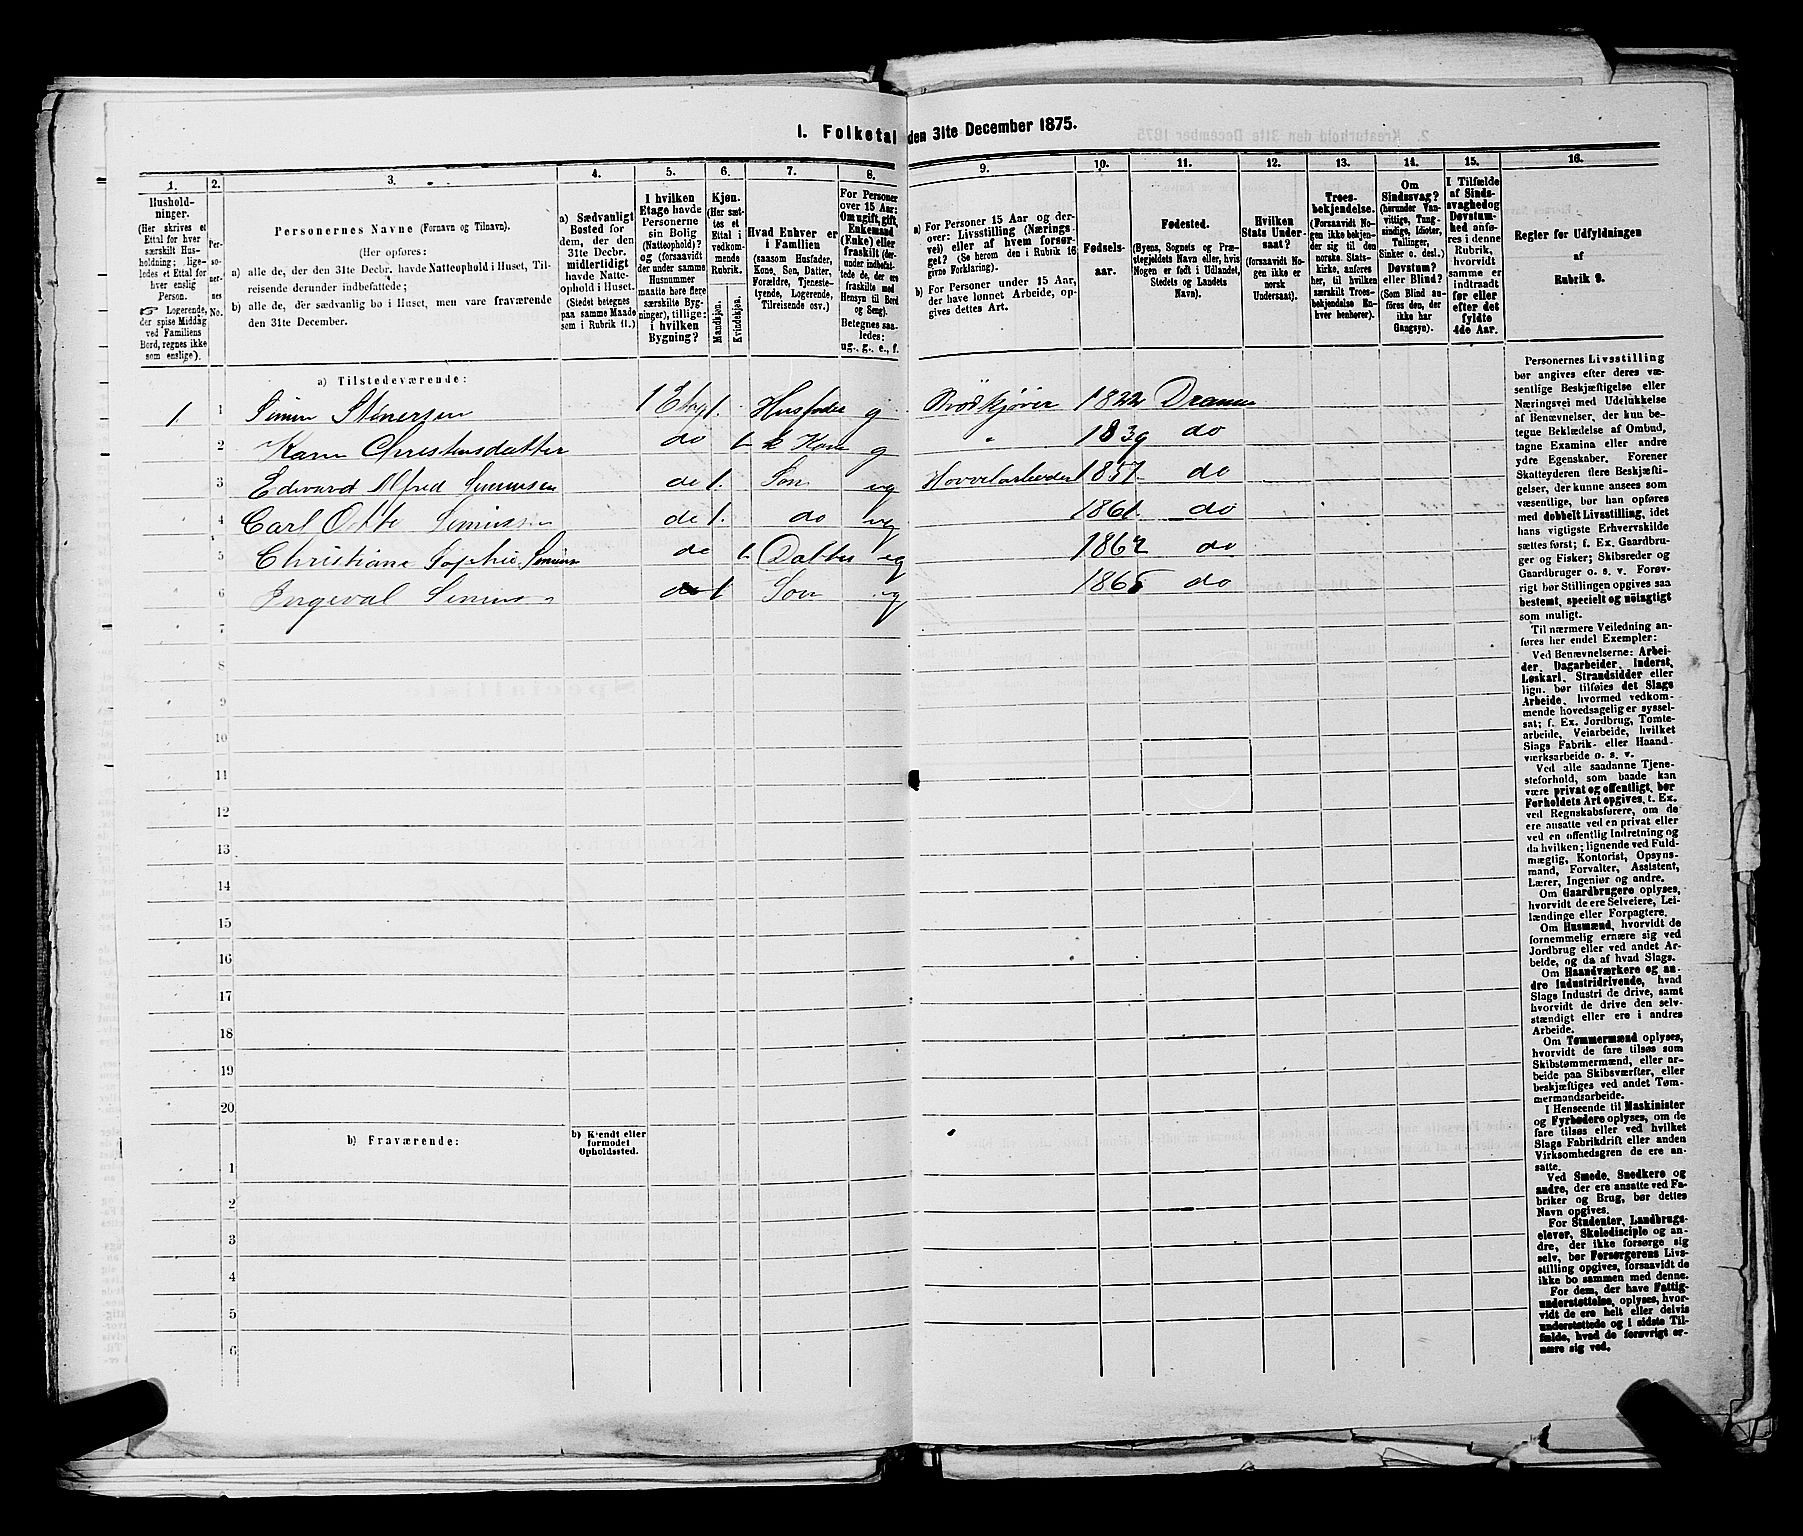 1. Folketal den 31te December 1875.
1.
Hushold-
ninger.
(Her skrives et
Ettal for hver
særskilt Hus-
holdning; lige-
ledes et Ettal for
hver enslig
Person.
☞ Logerende,
der spise Middag
ved Familiens
Bord, regnes ikke
som enslige).
2.
Per-
so-
ner-
nes
No.
3.
Personernes Navne (Fornavn og Tilnavn).
(Her opføres:
a) alle de, der den 31te Decbr. havde Natteophold i Huset, Til-
reisende derunder indbefattede;
b) alle de, der sædvanlig bo i Huset, men vare fraværende
den 31te December.
4.
a) Sædvanligt
Bosted for
dem, der den
31te Decbr.
midlertidigt
havde Natte-
ophold i Huset.
(Stedet betegnes
paa samme Maade
som i Rubrik 11.)
5.
I hvilken
Etage havde
Personerne
sin Bolig
(Natteophold)?
og (forsaavidt
der under samme
Husnummer
maatte høre flere
særskilte Byg-
ninger), tillige:
i hvilken
Bygning?
6.
Kjøn.
(Her sæt-
tes et
Ettal i
vedkom-
mende
Rubrik.
Mandkjøn.
Kvindekjøn.
7.
Hvad Enhver er
i Familien
(saasom Husfader,
Kone, Søn, Datter,
Forældre, Tjeneste-
tyende, Logerende,
Tilreisende osv.)
8.
For Personer
over 15 Aar:
Om ugift, gift,
Enkemand
(Enke) eller
fraskilt (der-
under indbefat-
tede de, der ere
fraskilte med
Hensyn til Bord
og Seng).
Betegnes saa-
ledes:
ug., g., e., f.
9.
a) For Personer 15 Aar og der-
over: Livsstilling (Nærings-
vei) eller af hvem forsør-
get? (Se herom den i Rubrik 16
givne Forklaring).
b) For Personer under 15 Aar,
der have lønnet Arbeide, op-
gives dettes Art.
10.
Fødsels-
aar.
11.
Fødested.
(Byens, Sognets og Præ-
stegjeldets Navn eller, hvis
Nogen er født i Udlandet,
Stedets og Landets
Navn).
12.
Hvilken
Stats Under-
saat?
(forsaavidt No-
gen ikke er
norsk
Undersaat).
13.
Troes-
bekjendelse.
(Forsaavidt No-
gen ikke bekjen-
der sig til den
norske Stats-
kirke, anføres
her, til hvilken
særskilt Troes-
bekjendelse En-
hver henhører).
14.
Om
Sindssvag?
(herunder Van-
vittige, Tung-
sindige, Idioter,
Tullinger,
Sinker o. desl.)
Døvstum?
eller Blind?
(Som Blind an-
føres den, der
ikke har
Gangsyn).
15.
I Tilfælde
af Sinds-
svaghed og
Døvstum-
hed anfø-
res i denne
Rubrik,
hvorvidt
samme er
indtraadt
før eller
efter det
fyldte
4de Aar.
16.
Regler for Udfyldningen
af
Rubrik 9.
a) Tilstedeværende:
1. 1 Simen 1 Etag 1. Husfader g Brødkjører 1822 Dramm
2 Karen do 1. Kone g " 1839 do
3 Edvard Alfred Simensen do 1. Søn ug Høvelarbeider 1857 do
4 Carl Otto Simensen do 1. do ug 1861 do
5 Christiane Sophie Simens do 1. Datter ug 1862 do
6 Ingeval Simens do 1 Søn ug 1865 do
7
8
9
10
11
12
13
14
15
16
17
18
19
20
b) Fraværende:
b) Kjendt eller
formodet
Opholdssted.
1
2
3
4
5
6
Personernes Livsstilling
bør angives efter deres væ-
sentlige Beskjæftigelse eller
Næringsvei med Udelukkelse
af Benævnelser, der kun be-
tegne Beklædelse af Ombud,
tagne Examina eller andre
ydre Egenskaber. Forener
Skatteyderen flere Beskjæfti-
gelser, der kunne ansees som
væsentlige, bør han opføres
med dobbelt Livsstilling, idet
hans vigtigste Erhvervskilde
sættes først; f. Ex. Gaardbru-
ger og Fisker; Skibsreder og
Gaardbruger o. s. v. Forøv-
rigt bør Stillingen opgives saa
bestemt, specielt og nøiagtigt
som muligt.
Til nærmere Veiledning an-
føres her endel Exempler:
Ved Benævnelserne: Arbei-
der, Dagarbeider, Inderst,
Løskarl, Strandsidder eller
lign. bør tilføies det Slags
Arbeide, hvormed vedkom-
mende hovedsagelig er syssel-
sat; f. Ex. Jordbrug, Tomte-
arbeide, Veiarbeide, hvilket
Slags Fabrik- eller Haand-
værksarbeide o. s. v.
Ved alle saadanne Tjene-
steforhold, som baade kan
være privat og offentligt, bør
Forholdets Art opgives, t. Ex.
ved Regnskabsførere, om de
ere ansatte ved en privat eller
ved en offentlig Indretning og
da hvilken; lignende ved Fuld-
mægtig, Kontorist, Opsyns-
mand, Forvalter, Assistent,
Lærer, Ingeniør og andre.
Om Gaardbrugere oplyses,
hvorvidt de ere Selveiere, Lei-
lændinge eller Forpagtere.
Om Husmænd, hvorvidt de
fornemmelig ernære sig ved
Jordbrug eller ved andet Ar-
beide, og da af hvad Slags.
Om Haandværkere og an-
dre Industridrivende, hvad
Slags Industri de drive, samt
hvorvidt de drive den selv-
stændigt eller ere i andres
Arbeide.
Om Tømmermænd oplyses,
hvorvidt de fare tilsøs som
Skibstømmermænd, eller ar-
beide paa Skibsværfter, eller
beskjæftiges ved andet Tøm-
mermandsarbeide.
I Henseende til Maskinister
og Fyrbødere oplyses, om de
fare tilsøs eller ved hvilket
Slags Fabrikdrift eller anden
Virksomhedsgren de ere an-
satte.
Ved Smede, Snedkere og
andre, der ere ansatte ved Fa-
briker og Brug, bør dettes
Navn opgives.
For Studenter, Landbrugs-
elever, Skoledisciple og an-
dre, der ikke forsørge sig
selv, bør Forsørgerens Livs-
stilling opgives, forsaavidt de
ikke bo sammen med denne.
For dem, der have Fattig-
understøttelse, oplyses, hvor-
vidt de ere helt eller delvis
understøttede og i sidste Til-
fælde, hvad de forøvrigt er-
nære sig ved.